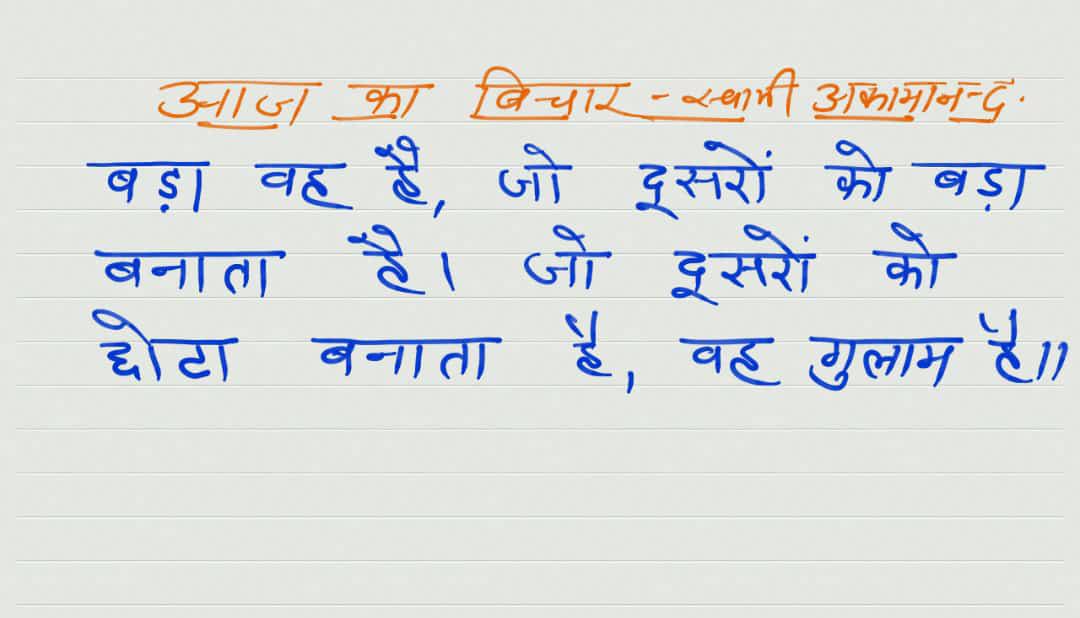 आज का बिचार - स्वामी अकामानन्द.
बड़ा वह है, जो दूसरों को बड़ा
बनाता है। जो दूसरों को
छोटा बनाता है, वह गुलाम है॥